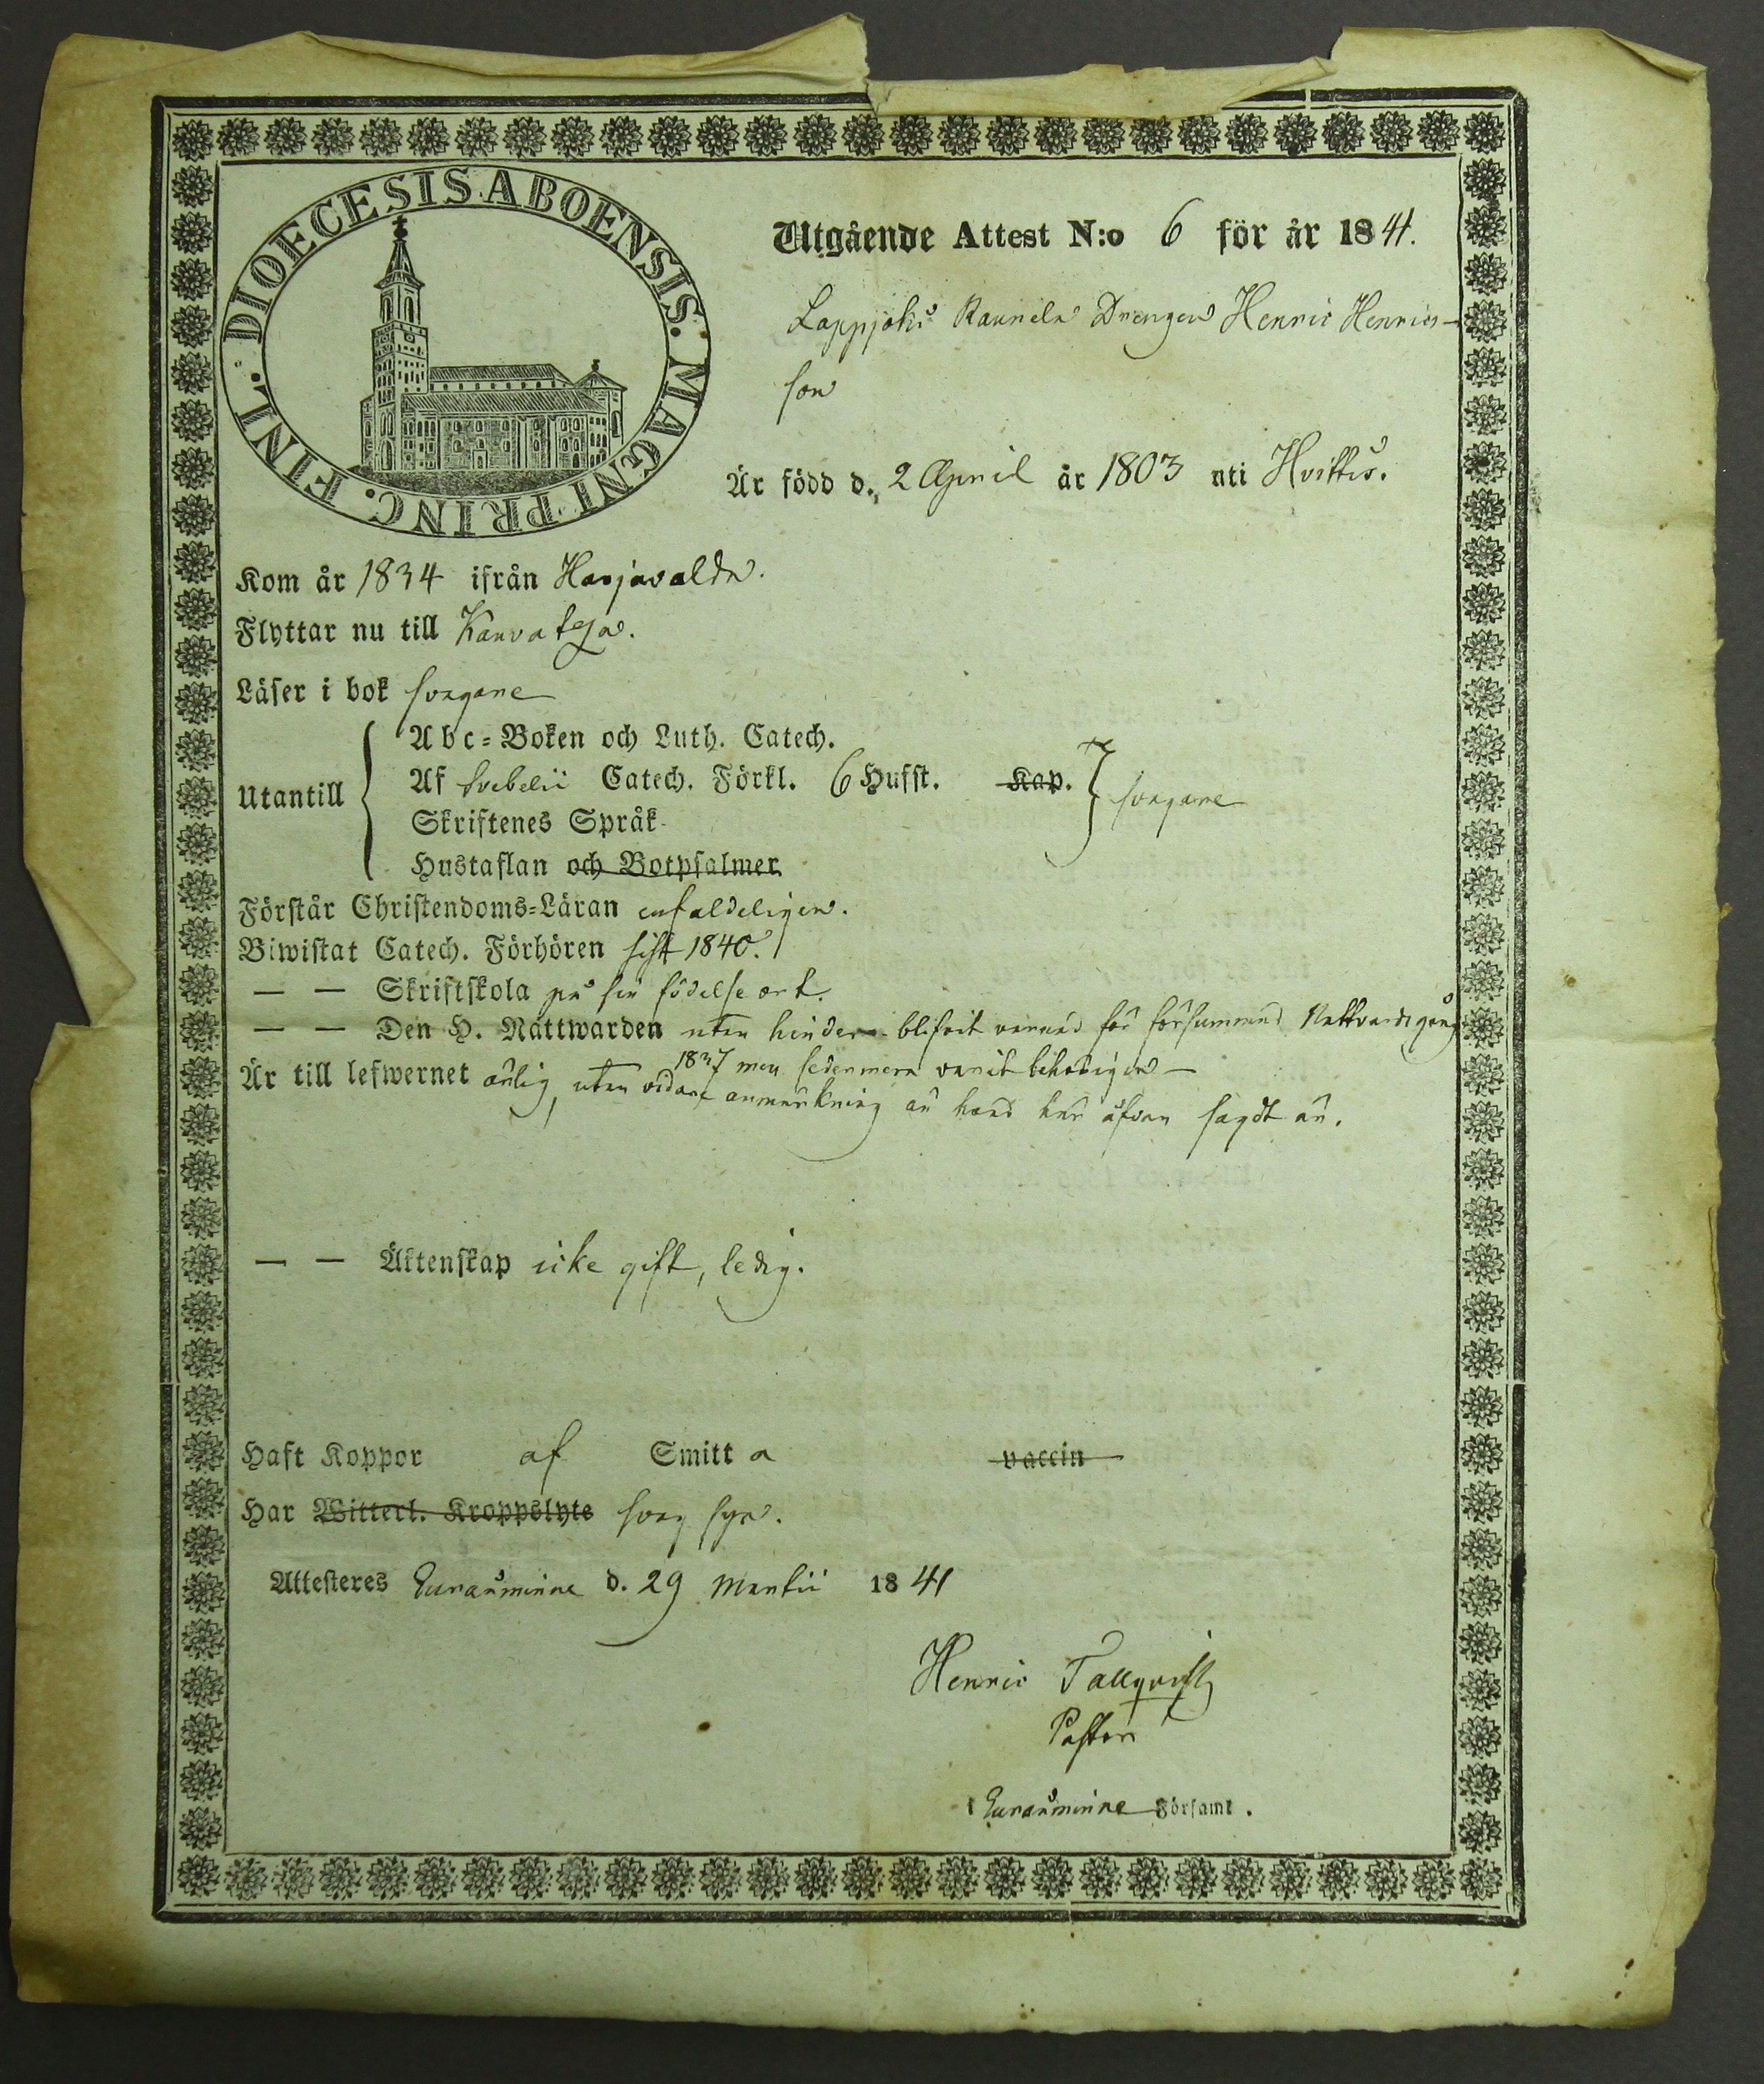 DIOECESIS ABOENSIS. MAGNI PRINC. FINL.
Utgående Attest N:o 6 för år 1841.
Lappjoki Raunela Drengen Henric Henrics-
son
Är född d. 2 April år 1803 uti Hvittis.
Kom år 1834 ifrån Harjavalda.
Flyttar nu till Kauvatsa.
Läser i bok svagare
Utantill
Abc-Boken och Luth. Catech.
Af Svebelii Catech. Förkl. 6 Hufst. Kap.
svagare
Skriftenes Språk
Hustaflan och Botpsalmer
Förstår Christendoms-Läran enfaldeligen.
Biwistat Catech. Förhören sist 1840.
— — Skriftskola på sin födelse ort.
— — Den H. Nattwarden utan hinder blifvit varnad för försummad Nattvardsgång
1837 men sedermera varit behörigen —
Är till lefwernet ärlig, utan vidare anmärkning än hvad här ofvan sagdt är.
— — Äktenskap icke gift, ledig.
Haft Koppor af Smitta vaccin
Har Witterl. Kroppslyte svag syn.
Attesteres Euraåminne d. 29 Martii 1841
Henric Tallqvist
Pastor
i Euraåminne Församl.